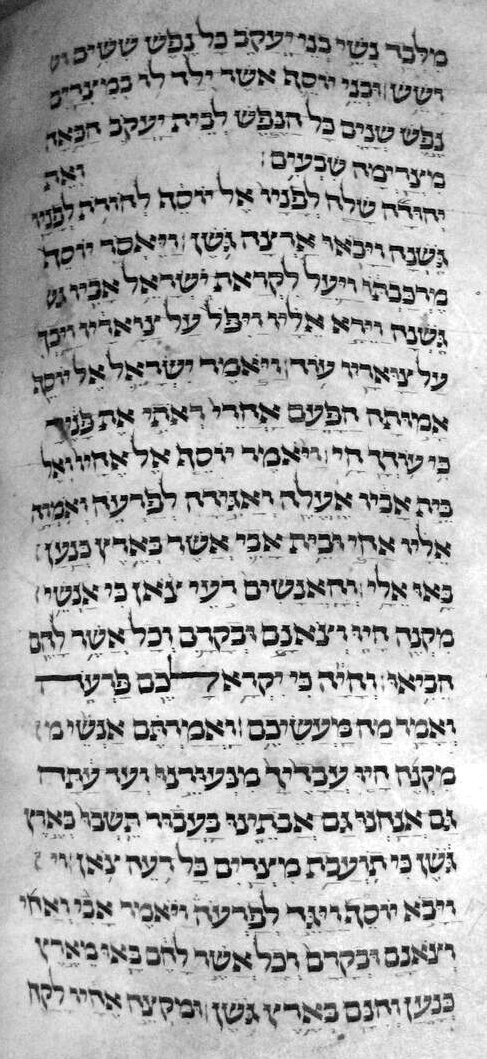 מִלְּבַד נְשֵׁי בְנֵי יַעֲקֹב כָּל נֶפֶשׁ שִׁשִּׁים וש
וָשֵׁשׁ׃ וּבְנֵי יוֹסֵף אֲשֶׁר יֻלַּד לוֹ בְמִצְרַיִם
נֶפֶשׁ שְׁנָיִם כָּל הַנֶּפֶשׁ לְבֵית יַעֲקֹב הַבָּאָה
מִצְרַיְמָה שִׁבְעִים׃ וְאֶת
יְהוּדָה שָׁלַח לְפָנָיו אֶל יוֹסֵף לְהוֹרֹת לְפָנָיו
גֹּשְׁנָה וַיָּבֹאוּ אַרְצָה גֹּשֶׁן׃ וַיֶּאְסֹר יוֹסֵף
מֶרְכַּבְתּוֹ וַיַּעַל לִקְרַאת יִשְׂרָאֵל אָבִיו גש
גֹּשְׁנָה וַיֵּרָא אֵלָיו וַיִּפֹּל עַל צַוָּארָיו וַיֵּבְךְּ
עַל צַוָּארָיו עוֹד׃ וַיֹּאמֶר יִשְׂרָאֵל אֶל יוֹסֵף
אָמוּתָה הַפָּעַם אַחֲרֵי רְאוֹתִי אֶת פָּנֶיךָ
כִּי עוֹדְךָ חָי׃ וַיֹּאמֶר יוֹסֵף אֶל אֶחָיו וְאֶל
בֵּית אָבִיו אֶעֱלֶה וְאַגִּידָה לְפַרְעֹה וְאֹמְרָה
אֵלָיו אַחַי וּבֵית אָבִי אֲשֶׁר בְּאֶרֶץ כְּנַעַן
בָּאוּ אֵלָי׃ וְהָאֲנָשִׁים רֹעֵי צֹאן כִּי אַנְשֵׁי
מִקְנֶה הָיוּ וְצֹאנָם וּבְקָרָם וְכָל אֲשֶׁר לָהֶם
הֵבִיאוּ׃ וְהָיָה כִּי יִקְרָא לָכֶם פַּרְעֹה
וְאָמַר מַה מַּעֲשֵׂיכֶם׃ וַאֲמַרְתֶּם אַנְשֵׁי מ
מִקְנֶה הָיוּ עֲבָדֶיךָ מִנְּעוּרֵינוּ וְעַד עַתָּה
גַּם אֲנַחְנוּ גַּם אֲבֹתֵינוּ בַּעֲבוּר תֵּשְׁבוּ בְּאֶרֶץ
גֹּשֶׁן כִּי תוֹעֲבַת מִצְרַיִם כָּל רֹעֵה צֹאן׃ וי
וַיָּבֹא יוֹסֵף וַיַּגֵּד לְפַרְעֹה וַיֹּאמֶר אָבִי וְאַחַי
וְצֹאנָם וּבְקָרָם וְכָל אֲשֶׁר לָהֶם בָּאוּ מֵאֶרֶץ
כְּנָעַן וְהִנָּם בְּאֶרֶץ גֹּשֶׁן׃ וּמִקְצֵה אֶחָיו לָקַח